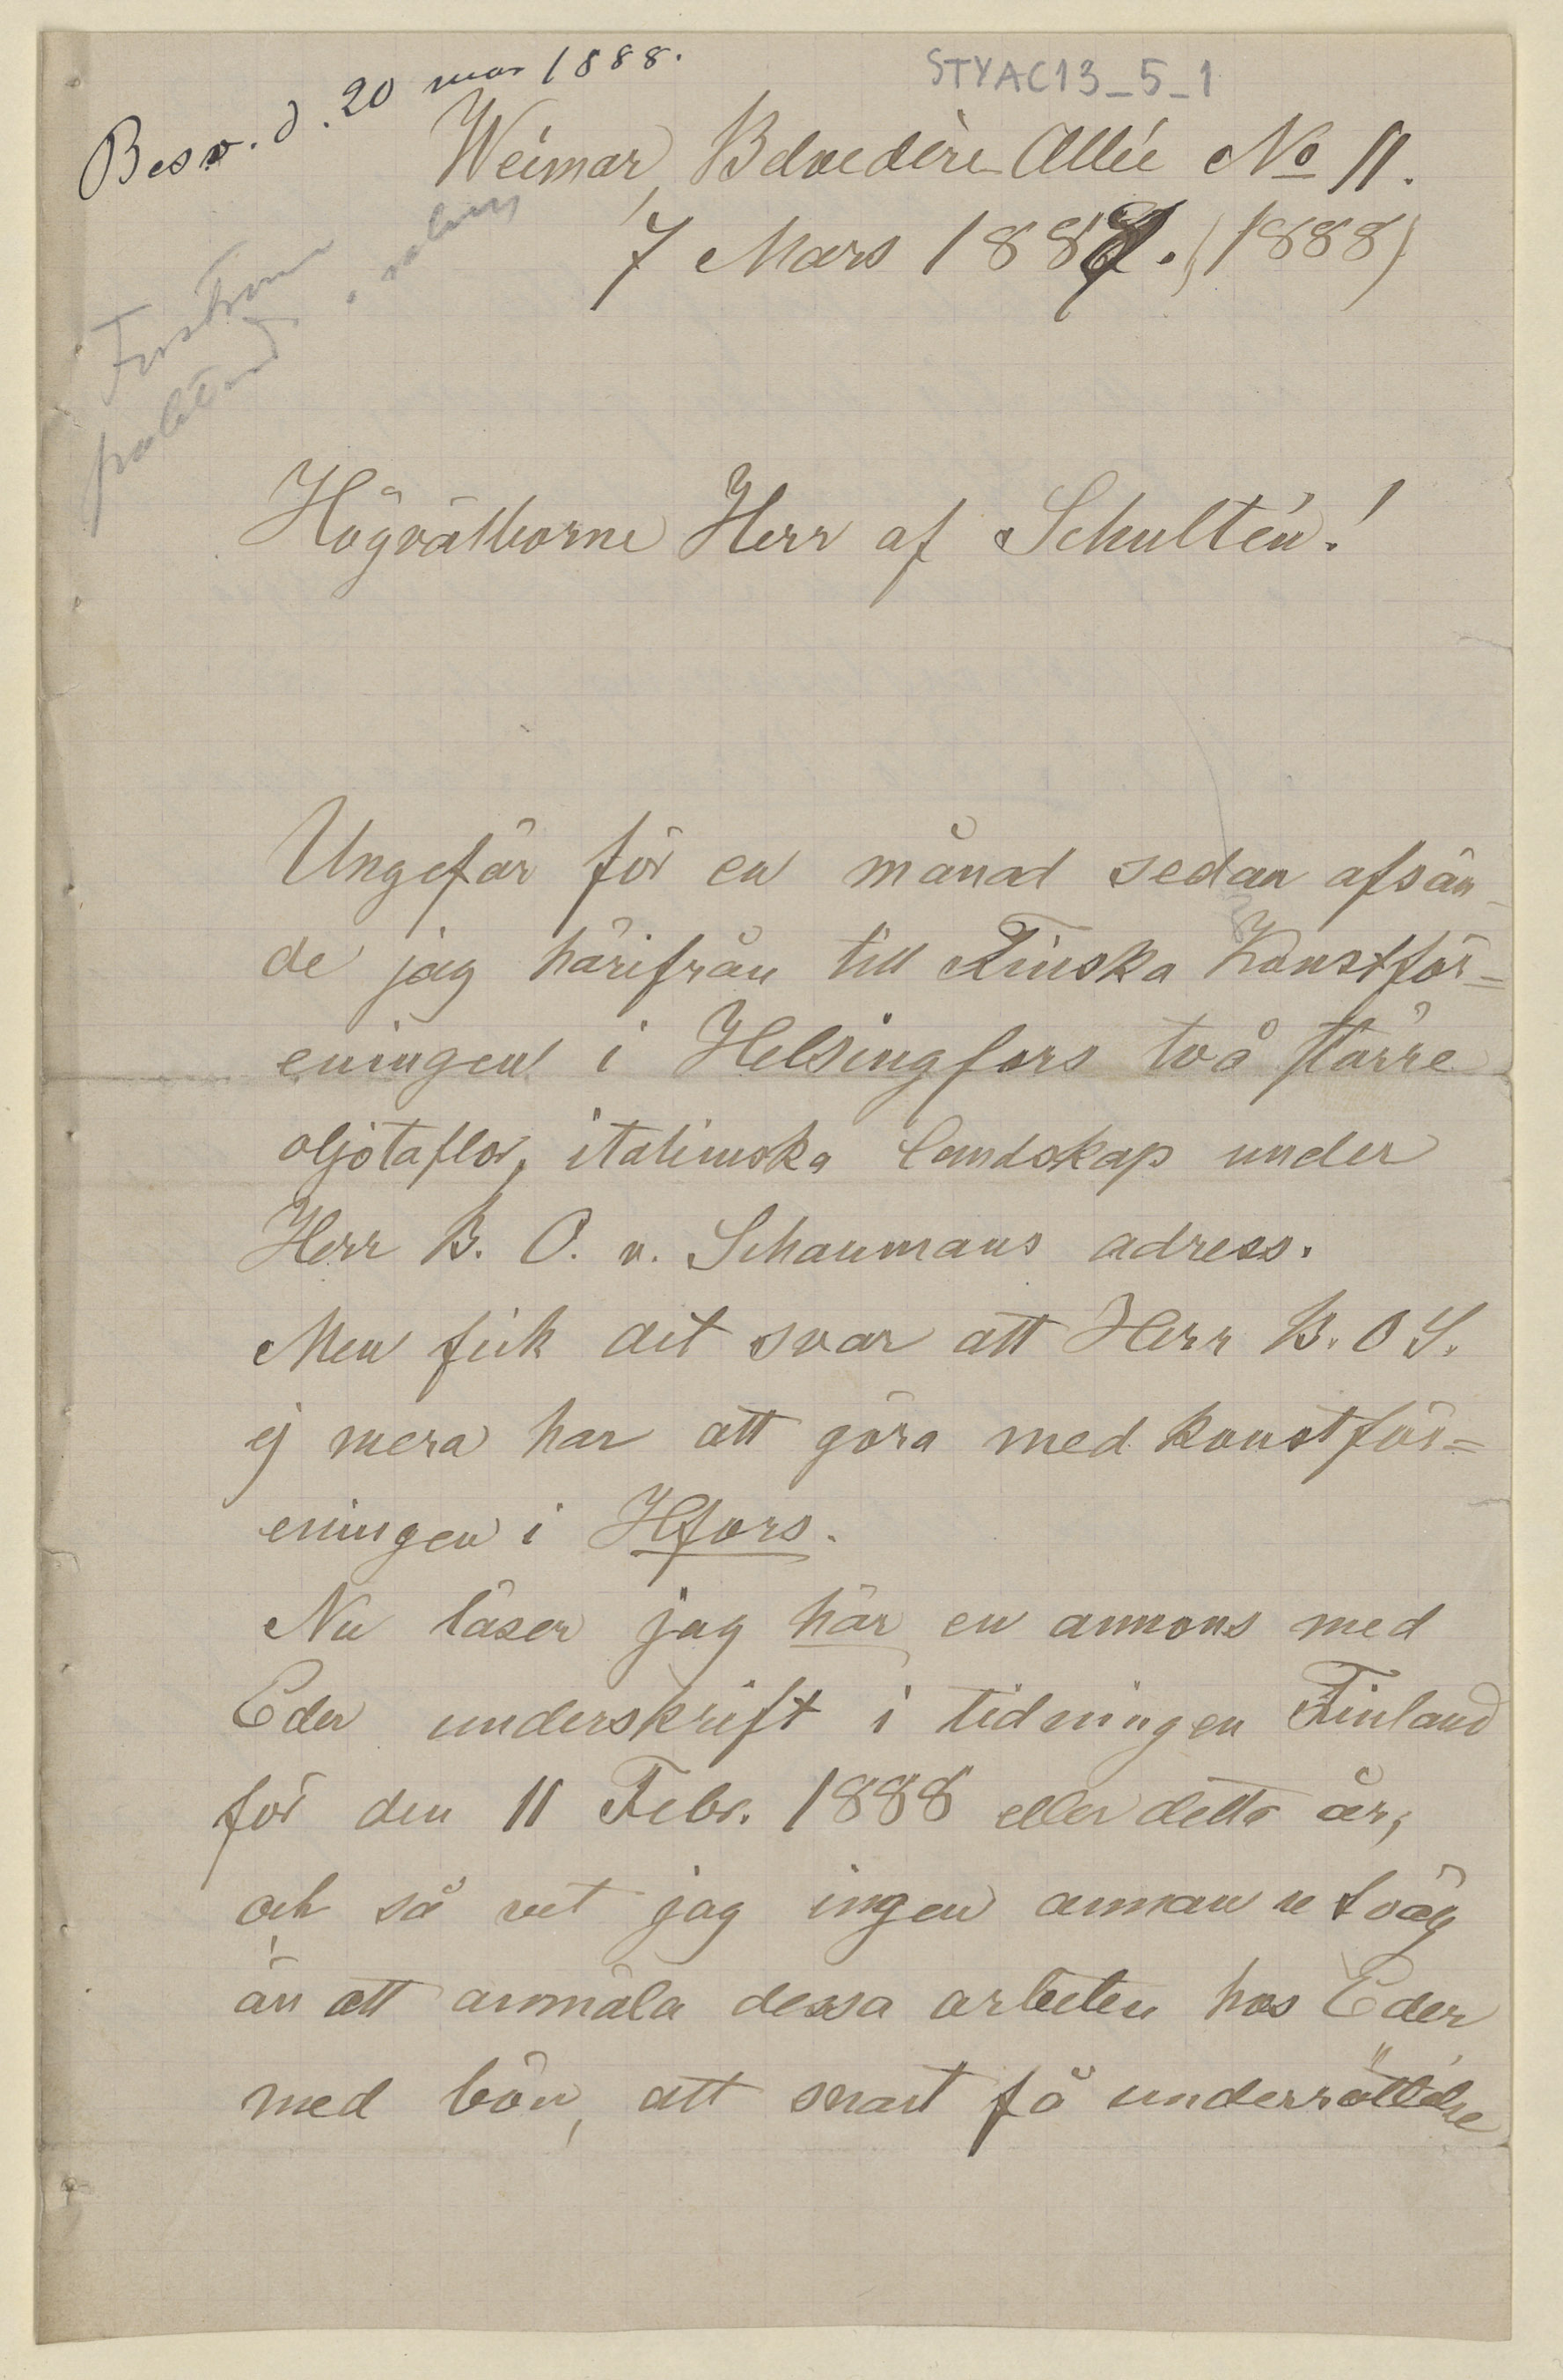 Besv. d. 20 mar 1888.
STYAC13_5_1
Weimar, Belvedère Allée No 11.
7 Mars 1888. (1888)
Högvälborne Herr af Schultén!
Ungefär för en månad sedan afsän-
de jag härifrån till Finska Konstför=
eningen i Helsingfors två större
oljotaflor, italienska landskap under
Herr B. O. v. Schaumans adress.
Men fick det svar att Herr B. O S.
ej mera har att göra med konstför=
eningen i Hfors.
Nu läser jag här en annons med
Eder underskrift i tidningen Finland
för den 11 Febr. 1888 eller detta år,
och så vet jag ingen annan utväg
än att anmäla dessa arbeten hos Eder
med bön, att snart få underrättelse